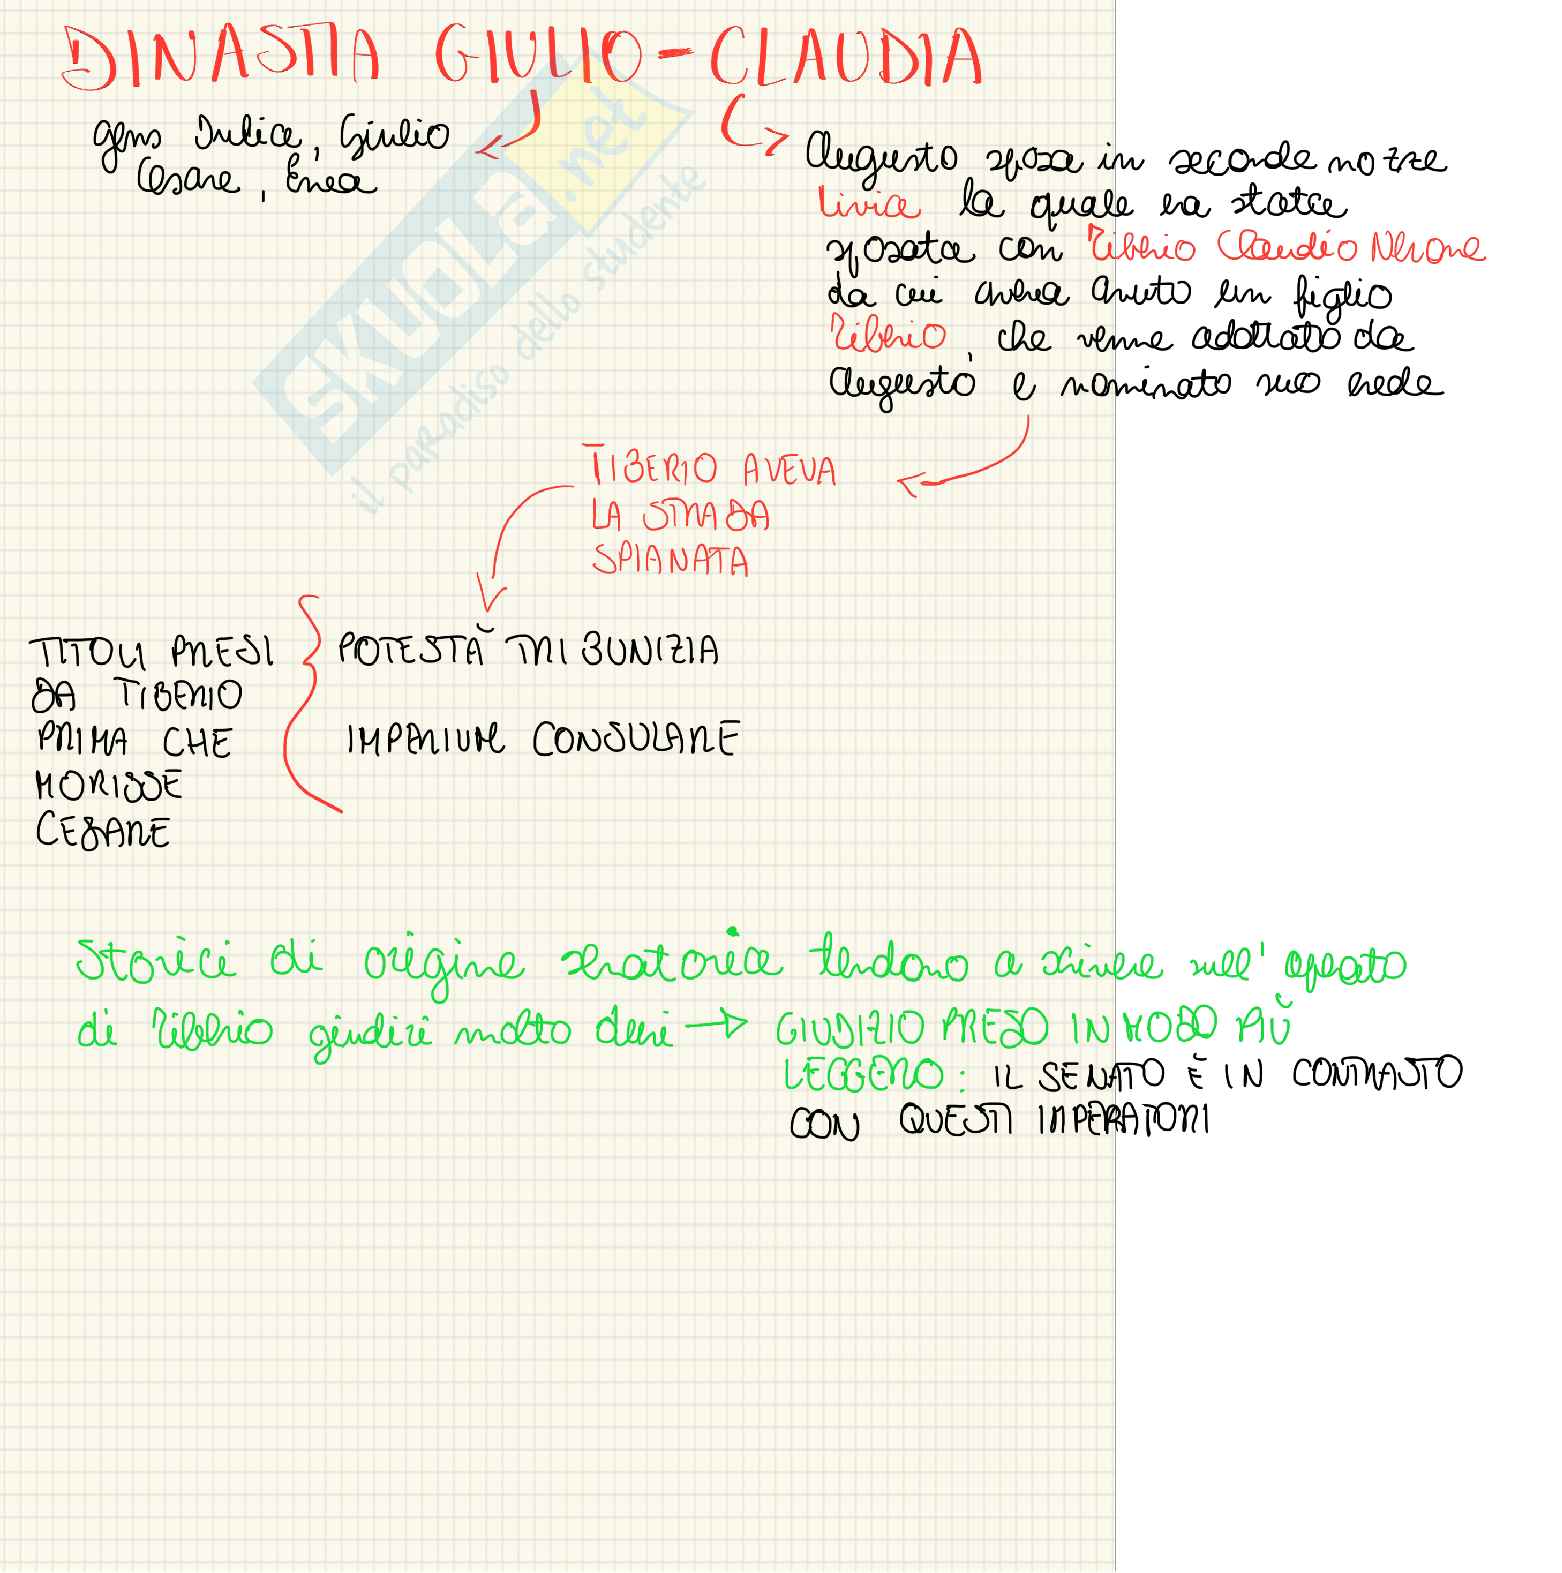 DINASTIA GIULIO-CLAUDIA
gens Iulia, Giulio
Cesare, Enea
Augusto sposa in seconde nozze
Livia la quale era stata
sposata con Tiberio Claudio Nerone
da cui aveva avuto un figlio
Tiberio, che venne adottato da
Augusto e nominato suo erede
TIBERIO AVEVA
LA STRADA
SPIANATA
TITOLI PRESI
DA TIBERIO
PRIMA CHE
MORISSE
CESARE
POTESTÀ TRIBUNIZIA
IMPERIUM CONSULARE
Storici di origine senatoria tendono a scrivere sull'operato
di Tiberio giudizi molto duri → GIUDIZIO PRESO IN MODO PIÙ
LEGGERO: IL SENATO È IN CONTRASTO
CON QUESTI IMPERATORI
SKUOLA.net
il paradiso dello studente